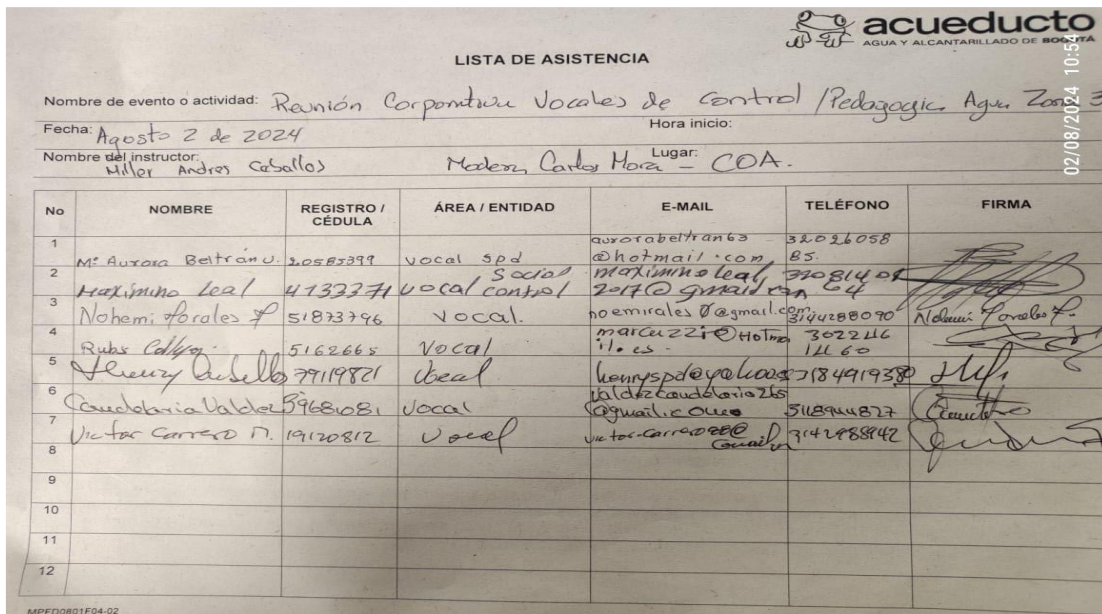 acueducto
AGUA Y ALCANTARILLADO DE BOGOTÁ
02/08/2024 10:54
LISTA DE ASISTENCIA
Nombre de evento o actividad: Reunión Corporativa Vocales de Control / Pedagogic Agua Zona 3
Fecha: Agosto 2 de 2024 Hora inicio:
Nombre del instructor: Miller Andres Ceballos Carlos Mora - Lugar: COA.
No NOMBRE REGISTRO / CÉDULA ÁREA / ENTIDAD E-MAIL TELÉFONO FIRMA
1 Mª Aurora Beltrán U. 20585399 vocal spd aurorabeltran63 @hotmail.com 32026058 85.
2 Maximino Leal 4133371 vocal Social control maximino leal 2017@
3 Nohemi Morales 51873796 Vocal. noemirales @gmail.com 3144288090 Nohemi Morales
4 Rubs 5162665 Vocal marcuzzi@Hotma il.es. 302246 1460
5 Henry 79119821 Vocal 3184919380
6 Candelaria Valdez 39681081 Vocal Valdezcandelaria265 @gmail.com
7 Victor Carrero M. 19120812 Vocal 3142988942
8
9
10
11
12
MPFD0801F04-02